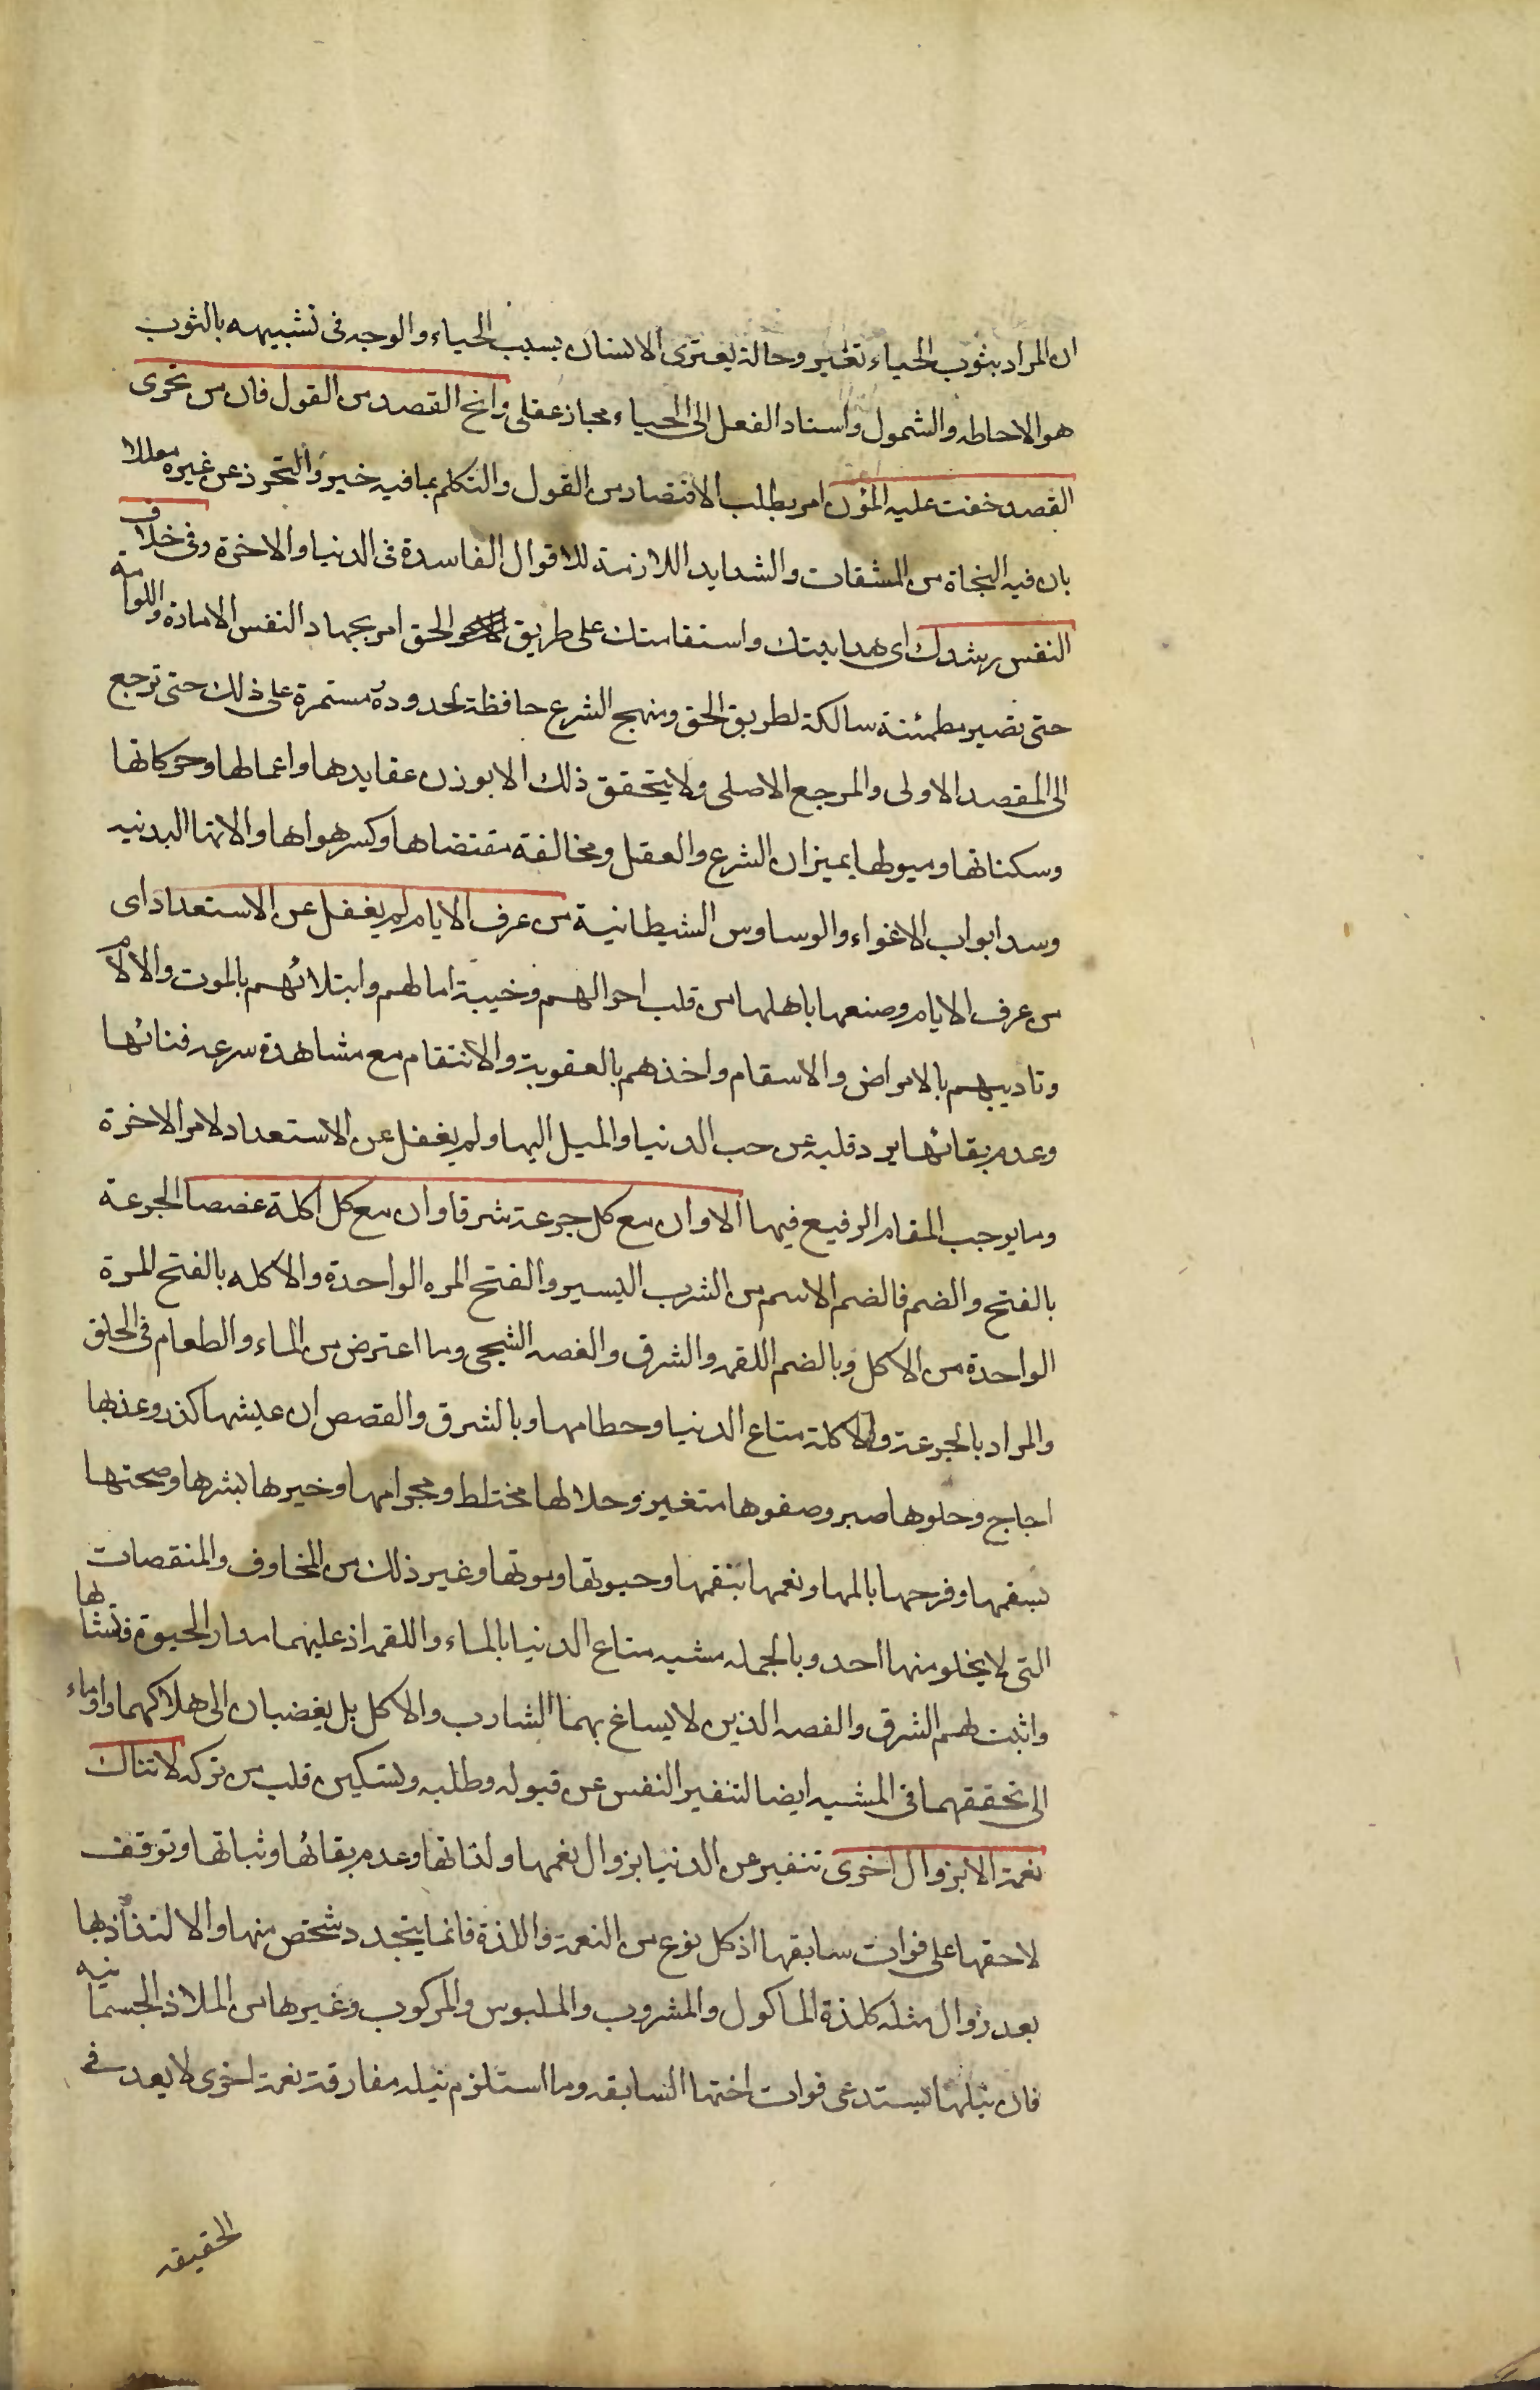 ان المراد بثوب الحياء تغير وحالة يعترى الانسان بسبب الحياء والوجه فى تشبيهه بالثوب
هو الاحاطه والشمول واسناد الفعل الى الحياء مجاز عقلى وانح القصد من القول فان من تحرى
القصد خفت عليه المؤن امر بطلب الاقتصاد من القول والتكلم بما فيه خير والتحرز عن غيره معللا
بان فيه النجاة من المشقات والشدايد اللازمة للاقوال الفاسدة فى الدنيا والاخرة وفى خلاف
النفس رشدك اى هدايتك واستقامتك على طريق الحق امر بجهاد النفس الامارة واللوامة
حتى تصير مطمئنة سالكة لطريق الحق ومنهج الشرع حافظة لحدوده مستمرة على ذلك حتى ترجع
الى المقصد الاولى والمرجع الاصلى ولا يتحقق ذلك الا بوزن عقايدها واعمالها وحركاتها
وسكناتها وميولها بميزان الشرع والعقل ومخالفة مقتضاها وكسر هواها والاتها البدنيه
وسد ابواب الاغواء والوساوس الشيطانية من عرف الايام لم يغفل عن الاستعداد اى
من عرف الايام وصنعها باهلها من قلب احوالهم وخيبة امالهم وابتلائهم بالموت والالام
وتاديبهم بالامراض والاسقام واخذهم بالعقوبة والانتقام مع مشاهدة سرعه فنائها
وعدم بقائها برد قلبه عن حب الدنيا والميل اليها ولم يغفل عن الاستعداد لامر الاخرة
وما يوجب المقام الرفيع فيها الا وان مع كل جرعة شرقا وان مع كل اكلة غصصا الجرعة
بالفتح والضم فالضم الاسم من الشرب اليسير والفتح المره الواحدة والاكله بالفتح المرة
الواحدة من الاكل وبالضم اللقمه والشرق والغصه الشجى وما اعترض من الماء والطعام فى الحلق
والمراد بالجرعة والاكلة متاع الدنيا وحطامها وبالشرق والغصص ان عيشها كدر وعذبها
اجاج وحلوها صبر وصفوها متغير وحلالها مختلط وبحرامها وخيرها بشرها وصحتها
بسقمها وفرحها بالمها ونعمها بنقمها وحيوتها وموتها وغير ذلك من المخاوف والمنقصات
التى لا يخلو منها احد وبالجمله مشبه متاع الدنيا بالماء واللقمه اذ عليهما مدار الحيوة فيها
واثبت لهم الشرق والغصه الذين لا يساغ بهما الشارب والاكل بل يفضيان الى هلاكهما واوماء
الى تحققهما فى المشبه ايضا لتنفير النفس عن قبوله وطلبه وتسكين قلب من تركه لا تنال
نعمة الا بزوال اخرى تنفير عن الدنيا بزوال نعمها ولذاتها وعدم بقائها وثباتها وتوقف
لاحقها على فوات سابقها اذ كل نوع من النعمة واللذة فانما يتجدد شخص منها والالتذاذ بها
بعد زوال مثله كلذة الماكول والمشروب والملبوس والمركوب وغيرها من الملاذ الجسمانيه
فان نيلها يستدعى فوات اختها السابقه وما استلزم نيله مفارقة نعمة اخرى لا يعد فى
الحقيقه